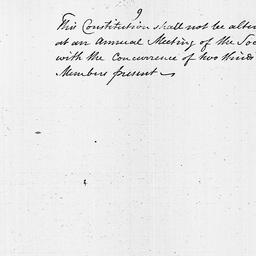 9
This Constitution shall not be alter
at an Annual Meeting of the Soc
with the Concurrence of two thirds
Members present